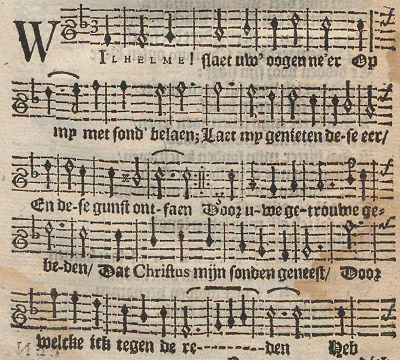 WILHELME! slaet uw' oogen ne'er Op
my met sond' belaen; Laet my genieten de-se eer/
En de-se gunst ont-faen Door u-we ge-trouwe ge-
be-den/ Dat Christus mijn sonden geneest/ Door
welcke ick tegen de re---------den Heb